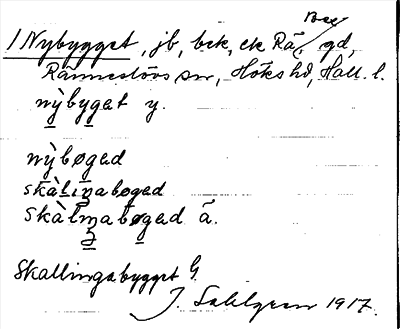 Bee
/ Nybygget, jb, bek, ek Rä, gd,
Ränneslövs sn, Höks hd, Hall. l.
nỳbyget y.
nỳbøged
skàliŋabøged
skàlŋabøged ä.
Skallingabygget G.
J. Sahlgren 1917.